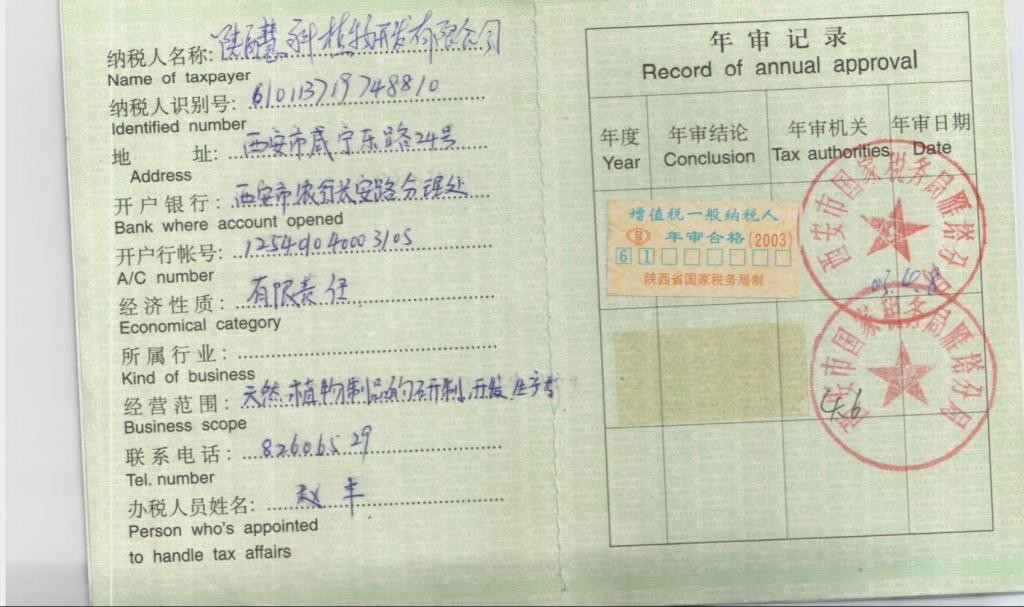 纳税人名称: 陕西慧科植物研发有限公司
Name of taxpayer
纳税人识别号: 610113719748810
Identified number
地 址: 西安市咸宁东路24号
Address
开户银行: 西安市农行长安路分理处
Bank where account opened
开户行帐号:
A/C number
经济性质: 有限责任
Economical category
所属行业:
Kind of business
经营范围: 天然植物制品的研制,开发,生产
Business scope
联系电话: 82606529
Tel. number
办税人员姓名: 赵丰
Person who's appointed
to handle tax affairs
年审记录
Record of annual approval
年度 年审结论 年审机关 年审日期
Year Conclusion Tax authorities Date
增值税一般纳税人
年审合格(2003)
61
陕西省国家税务局制
西安市国家税务局雁塔分局
西安市国家税务局雁塔分局